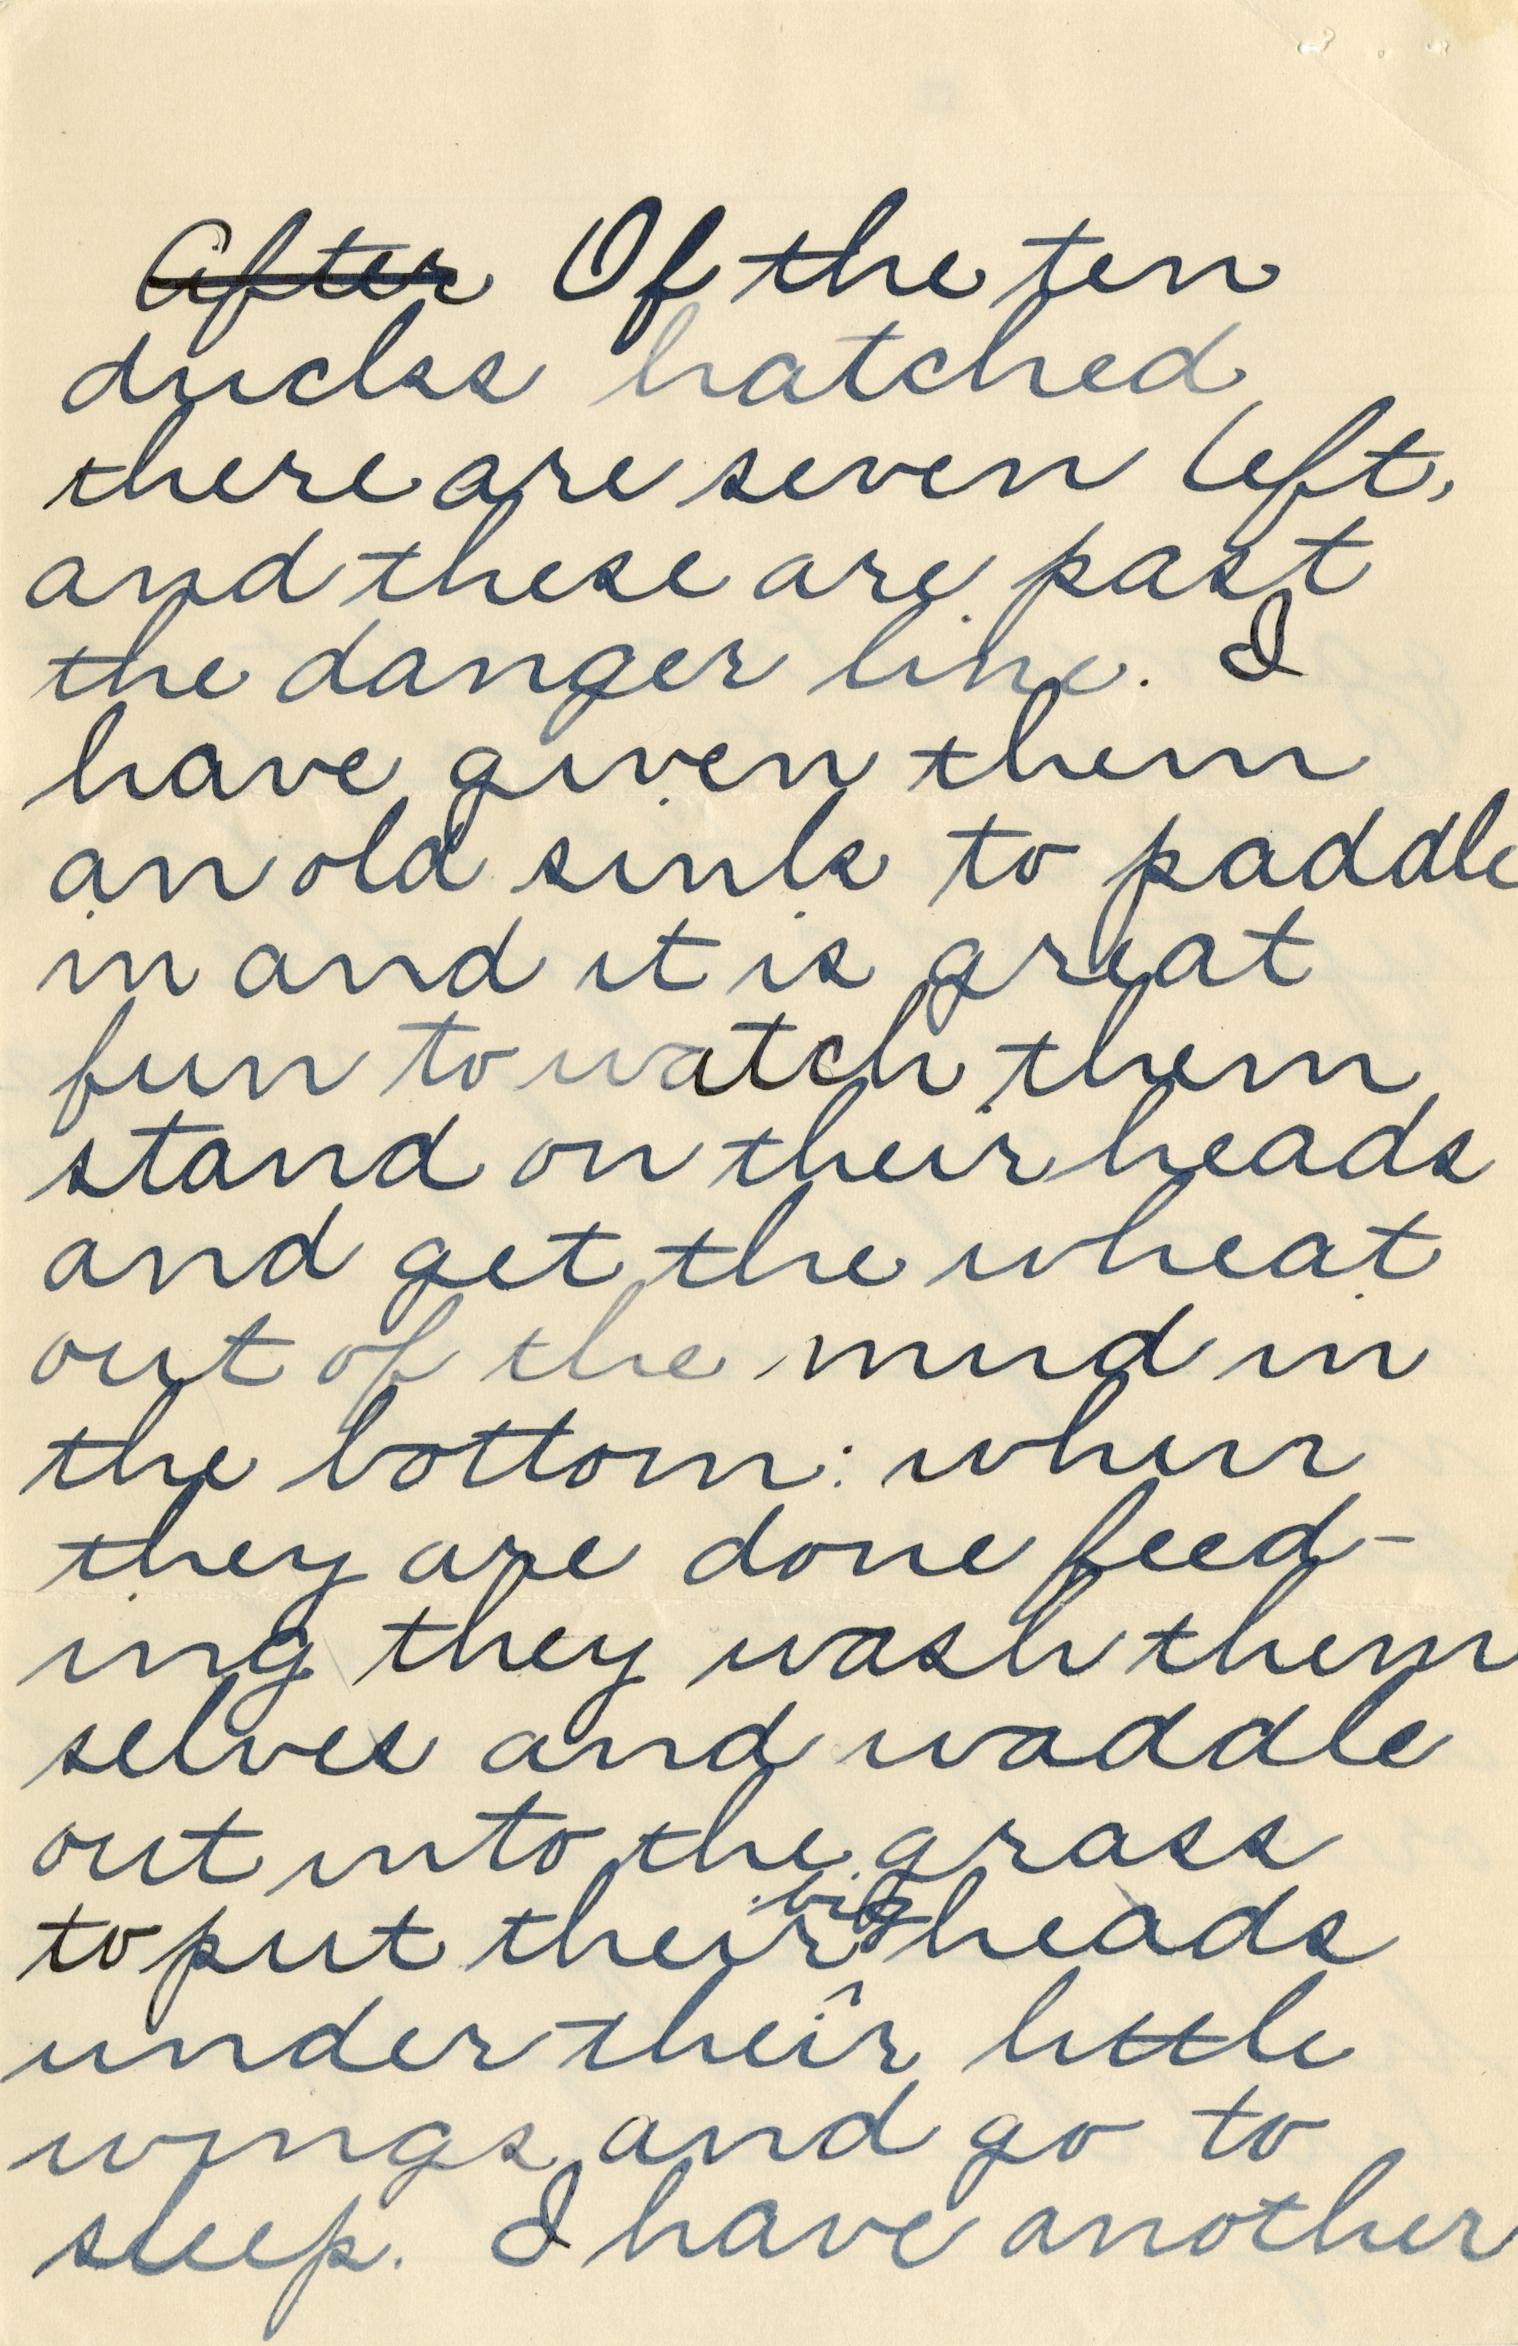 After Of the ten
ducks hatched
there are seven left,
and these are past
the danger line. I
have given them
an old sink to paddle
in and it is great
fun to watch them
stand on their heads
and get the wheat
out of the mud in
the bottom: when
they are done feed-
ing they wash them
selves and waddle
out into the grass
to put their big heads
under their little
wings and go to
sleep. I have another